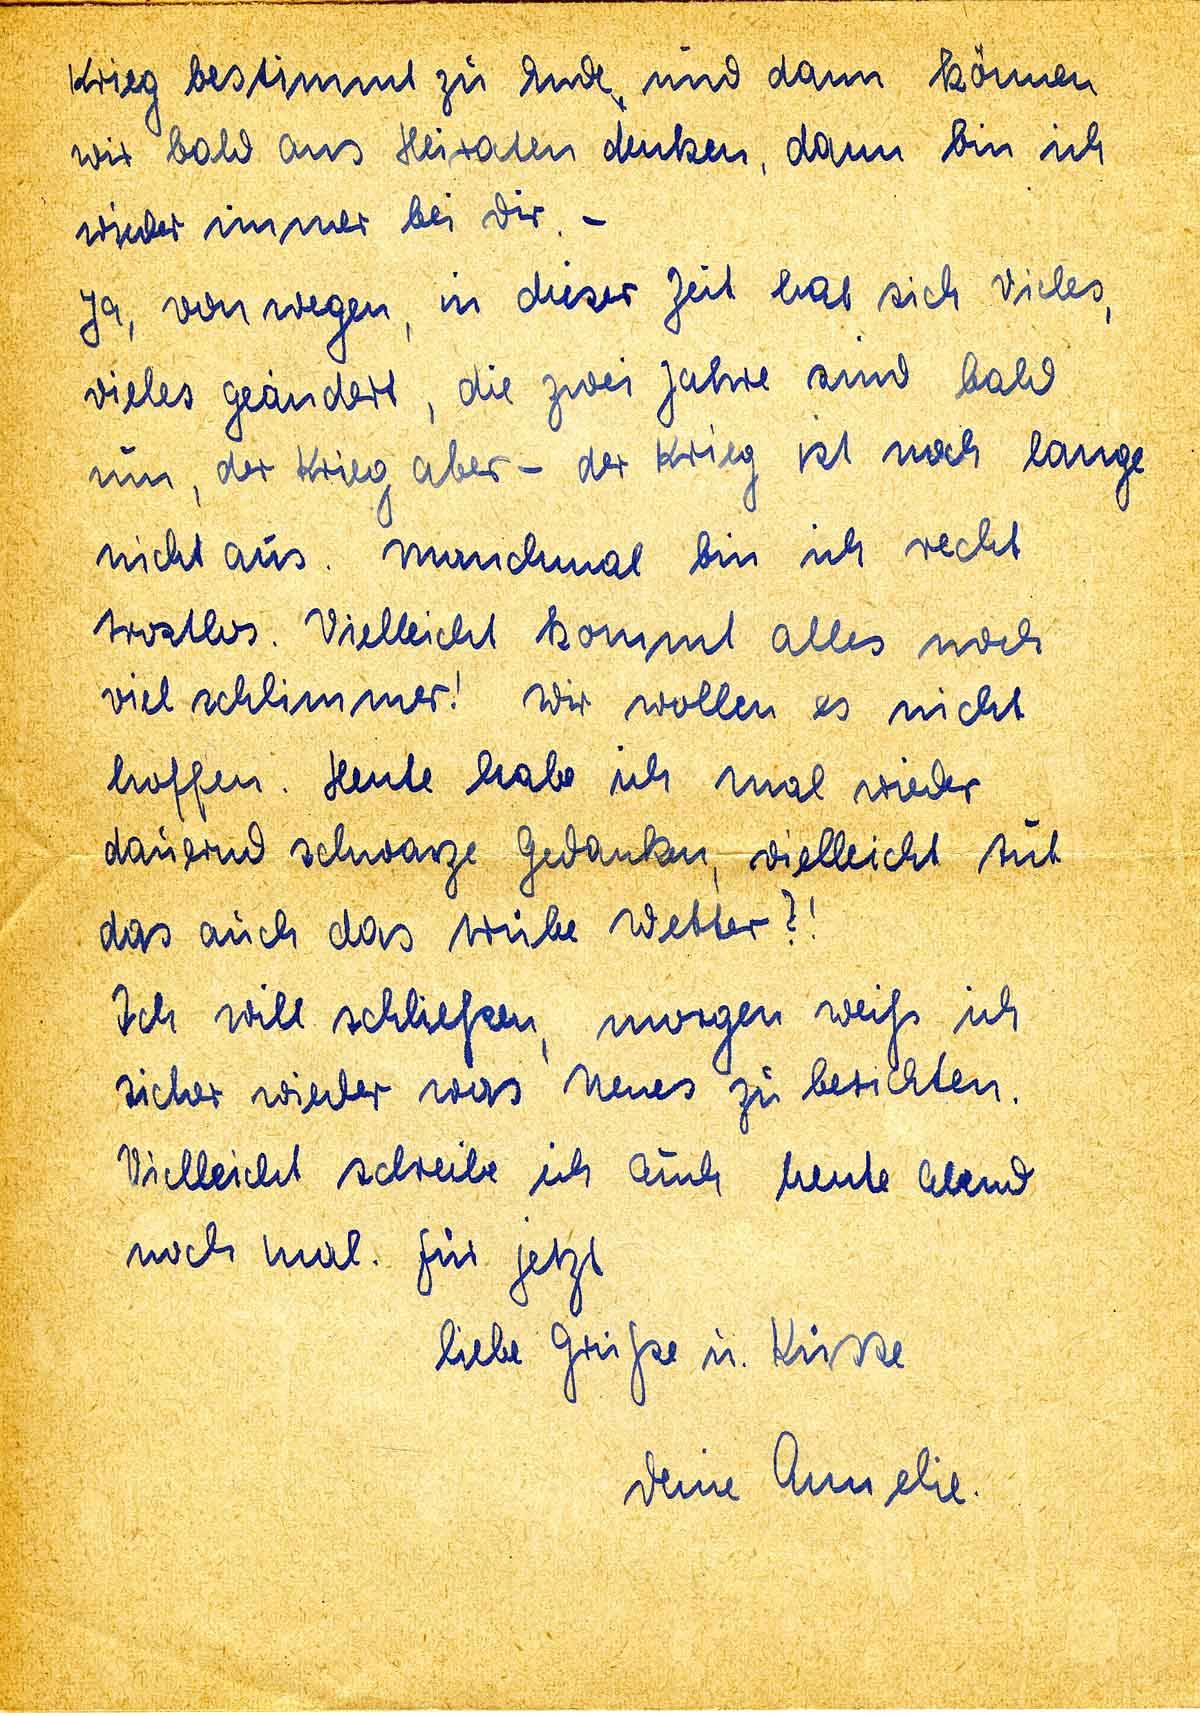 Krieg bestimmt zu Ende, und dann können
wir bald ans Heiraten denken, dann bin ich
wieder immer bei Dir. –
Ja, von wegen, in dieser Zeit hat sich Vieles,
vieles geändert, die zwei Jahre sind bald
um, der Krieg aber – der Krieg ist noch lange
nicht aus. Manchmal bin ich recht
trostlos. Vielleicht kommt alles noch
viel schlimmer! Wir wollen es nicht
hoffen. Heute habe ich mal wieder
dauernd schwarze Gedanken, vielleicht tut
das auch das trübe Wetter?!
Ich will schließen, morgen weiß ich
sicher wieder was Neues zu berichten.
Vielleicht schreibe ich auch heute Abend
noch mal. Für jetzt
liebe Grüße u. Küsse
Deine Annelie.